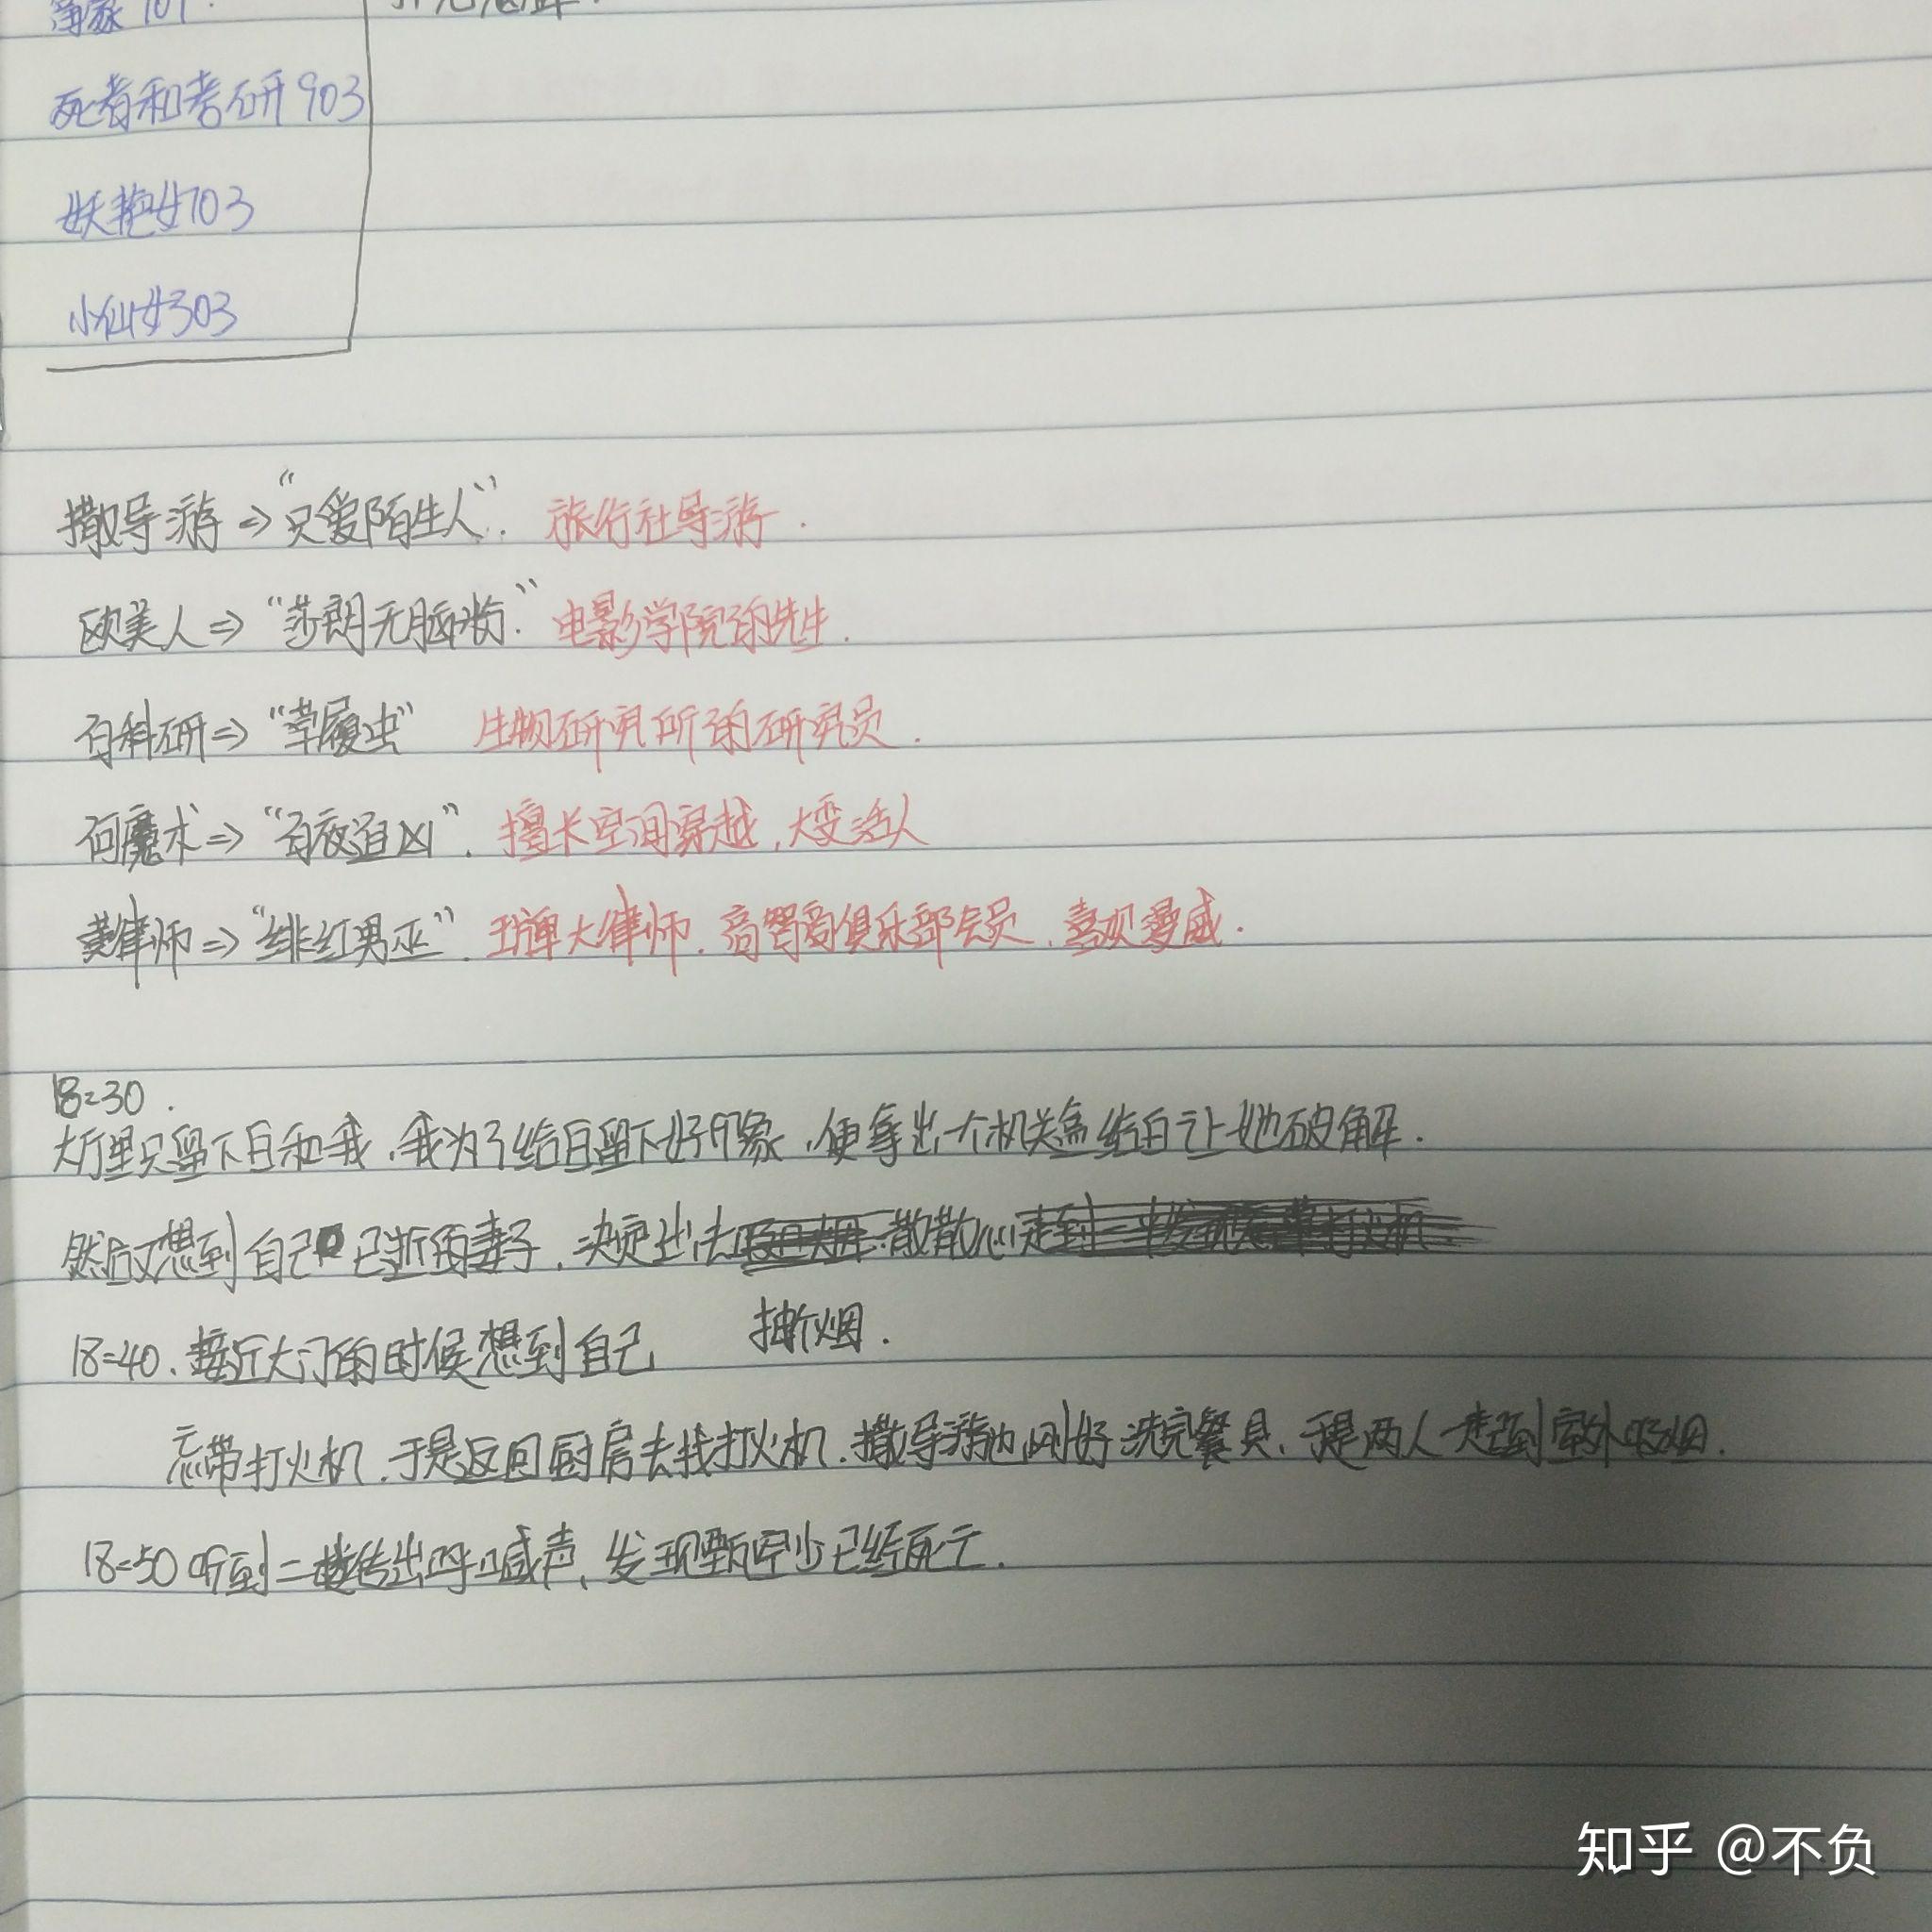 死者和考研903
妖艳女703
小仙女303
撒导游⇒“只爱陌生人”. 旅行社导游.
欧美人⇒“莎朗无脑粉.” 电影学院的先生.
白科研⇒“草履虫” 生物研究所的研究员.
何魔术⇒“白夜追凶”. 擅长空间穿越,大变活人
黄律师⇒“绯红男巫”. 王牌大律师. 高智商俱乐部会员、喜欢漫威.
18:30.
大厅里只留下白和我,我为了给白留下好印象,便拿出一个机关盒给白让她破解.
然后又想到自己已逝的妻子,决定出去散散心
抽烟.
18:40、接近大门的时候想到自己
忘带打火机,于是返回厨房去找打火机.撒导游也刚好洗完餐具、于是两人一起到室外吸烟.
18:50听到二楼传出呼喊声、发现甄罕少已经死亡.
知乎 @不负